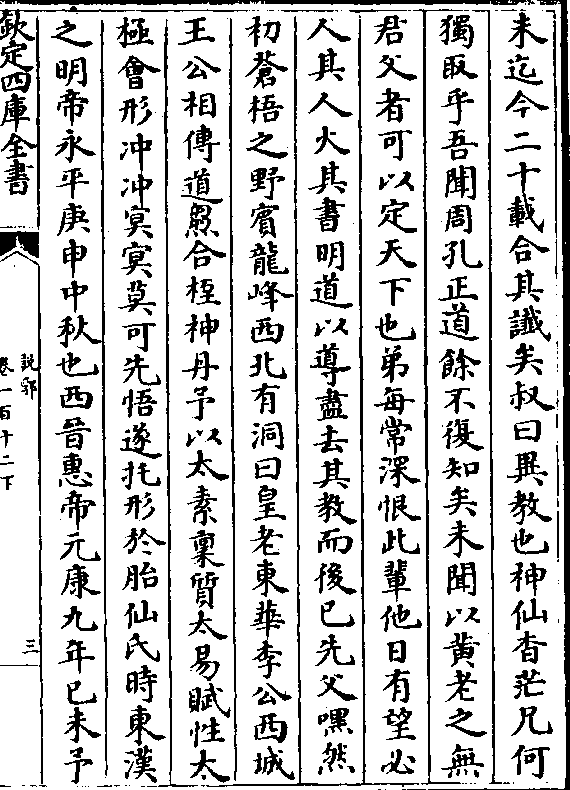 未迄今二十載合其讖矣叔曰異教也神仙杳茫兄何
獨取乎吾聞周孔正道餘不復知矣未聞以黄老之無
君父者可以定天下也弟每常深恨此輩他日有望必
人其人火其書明道以導盡去其教而後已先父嘿然
初蒼梧之野賓龍峰西北有洞曰皇老東華李公西城
王公相傳道顥合桎神丹予以太素稟質太易賦性太
極會形冲冲冥冥莫可先悟遂托形於胎仙氏時東漢
之明帝永平庚申中秋也西晉惠帝元康九年已未予
欽定四庫全書
說郛
卷一百十二下
三